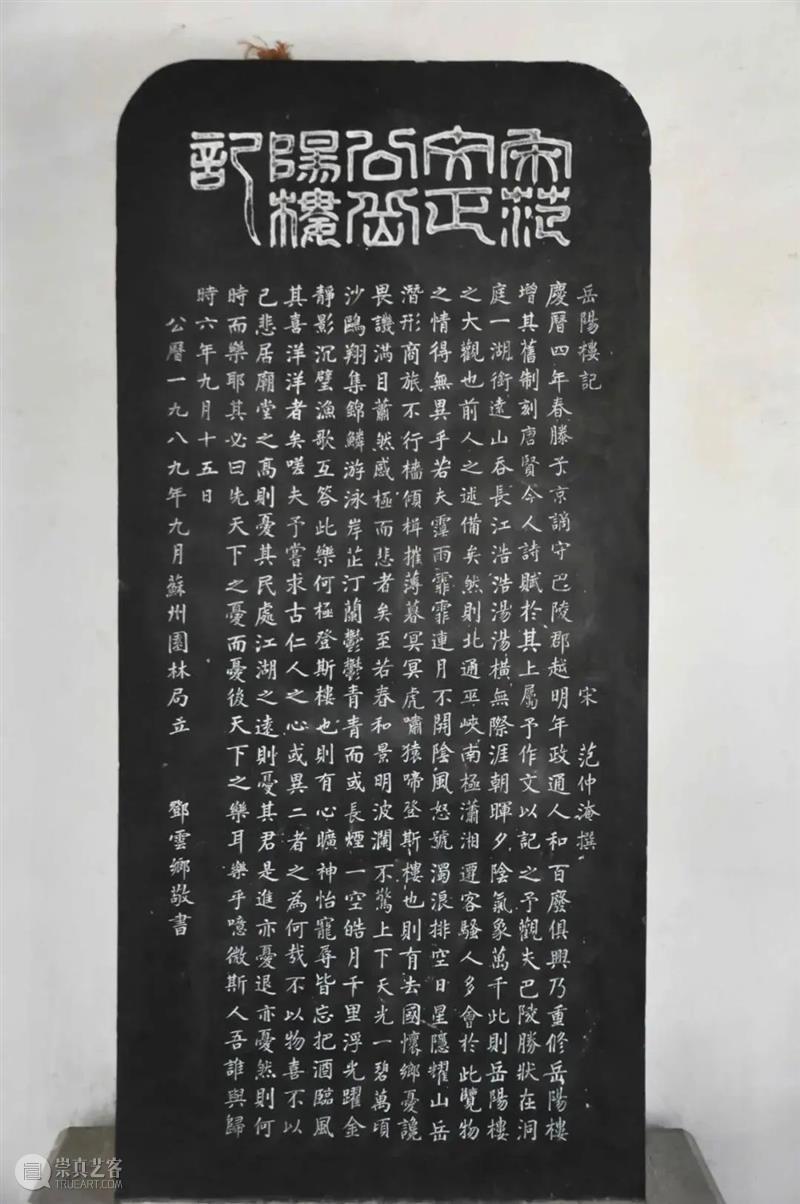 宋范
文正
公岳
陽樓
記
岳陽樓記 宋 范仲淹撰
慶曆四年春滕子京謫守巴陵郡越明年政通人和百廢俱興乃重修岳陽樓
增其舊制刻唐賢今人詩賦於其上屬予作文以記之予觀夫巴陵勝狀在洞
庭一湖銜遠山吞長江浩浩湯湯橫無際涯朝暉夕陰氣象萬千此則岳陽樓
之大觀也前人之述備矣然則北通巫峽南極瀟湘遷客騷人多會於此覽物
之情得無異乎若夫霪雨霏霏連月不開陰風怒號濁浪排空日星隱耀山岳
潛形商旅不行檣傾楫摧薄暮冥冥虎嘯猿啼登斯樓也則有去國懷鄉憂讒
畏譏滿目蕭然感極而悲者矣至若春和景明波瀾不驚上下天光一碧萬頃
沙鷗翔集錦鱗游泳岸芷汀蘭鬱鬱青青而或長煙一空皓月千里浮光躍金
靜影沉璧漁歌互答此樂何極登斯樓也則有心曠神怡寵辱皆忘把酒臨風
其喜洋洋者矣嗟夫予嘗求古仁人之心或異二者之為何哉不以物喜不以
己悲居廟堂之高則憂其民處江湖之遠則憂其君是進亦憂退亦憂然則何
時而樂耶其必曰先天下之憂而憂後天下之樂耳樂乎噫微斯人吾誰與歸
時六年九月十五日
公曆一九八九年九月蘇州園林局立 鄧雲鄉敬書
崇真艺客
WWW.TRUEART.COM